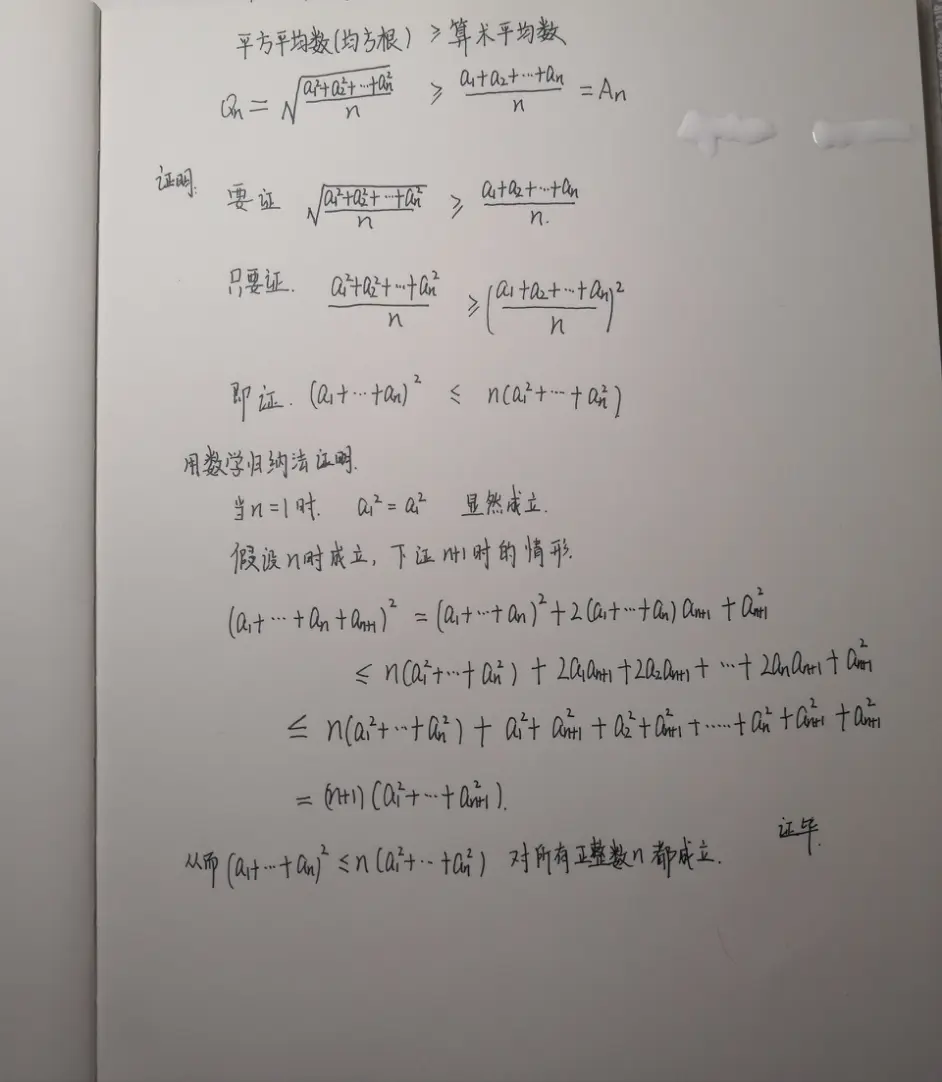 平方平均数(均方根) ≥ 算术平均数
Qn = √((a₁²+a₂²+…+aₙ²)/n) ≥ (a₁+a₂+…+aₙ)/n = Aₙ
证明: 要证 √((a₁²+a₂²+…+aₙ²)/n) ≥ (a₁+a₂+…+aₙ)/n.
只要证. (a₁²+a₂²+…+aₙ²)/n ≥ ((a₁+a₂+…+aₙ)/n)²
即证. (a₁+…+aₙ)² ≤ n(a₁²+…+aₙ²)
用数学归纳法证明.
当n=1时. a₁²=a₁² 显然成立.
假设n时成立, 下证n+1时的情形.
(a₁+…+aₙ+aₙ₊₁)² = (a₁+…+aₙ)²+2(a₁+…+aₙ)aₙ₊₁+aₙ₊₁²
≤ n(a₁²+…+aₙ²)+2a₁aₙ₊₁+2a₂aₙ₊₁+…+2aₙaₙ₊₁+aₙ₊₁²
≤ n(a₁²+…+aₙ²)+a₁²+aₙ₊₁²+a₂²+aₙ₊₁²+……+aₙ²+aₙ₊₁²+aₙ₊₁²
= (n+1)(a₁²+…+aₙ₊₁²).
从而(a₁+…+aₙ)² ≤ n(a₁²+…+aₙ²) 对所有正整数n都成立.
证毕.